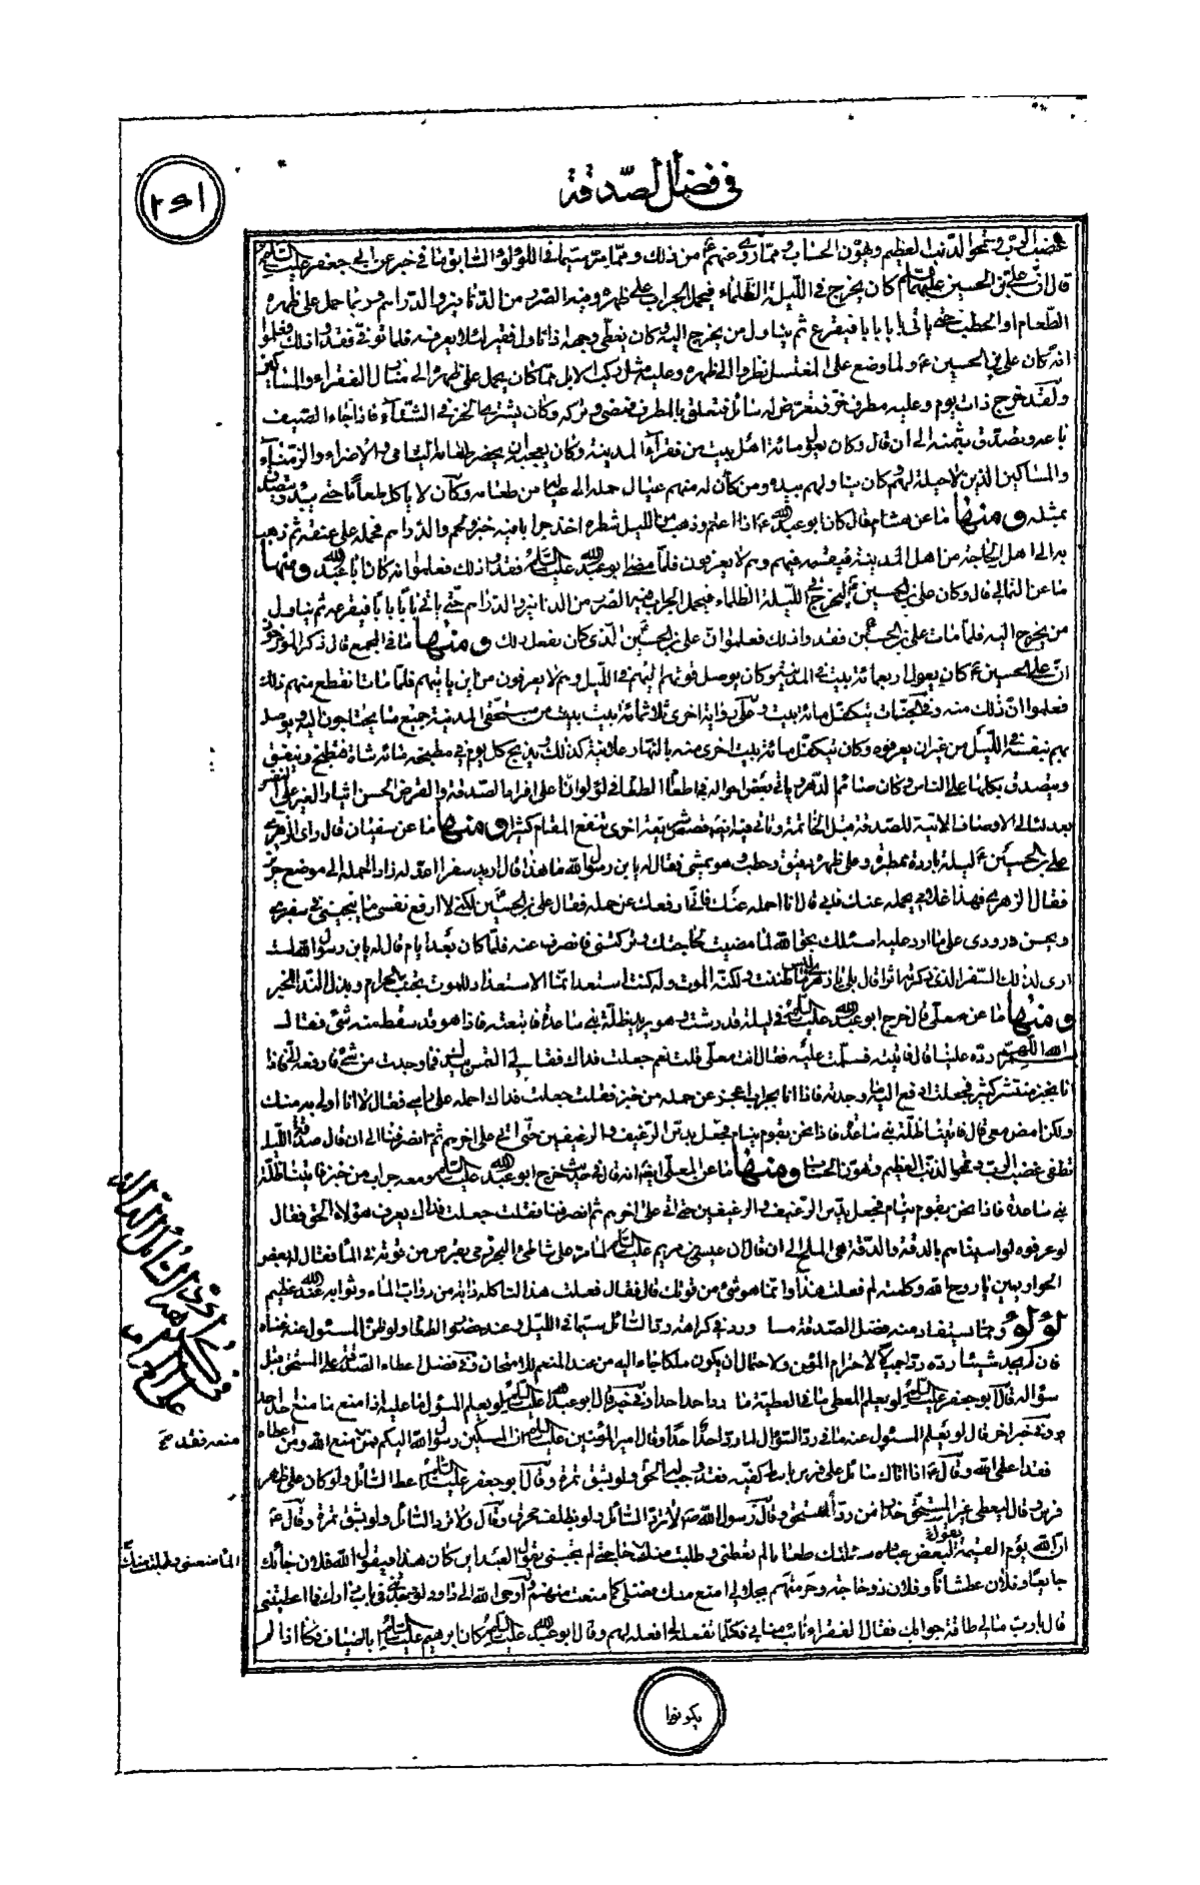 في فضل الصدقة
غضب الرب وتمحو الذنب العظيم وتهون الحساب ومما روي عنهم من ذلك ومما مر سيما في اللؤلؤ السابق ما في خبر عن أبي جعفر عليه السلام
قال ان علي بن الحسين عليهما السلام كان يخرج في الليلة الظلماء فيحمل الجراب على ظهره وفيه الصرر من الدنانير والدراهم وربما حمل على ظهره
الطعام او الحطب حتى يأتي بابا بابا فيقرع ثم يناول من يخرج اليه وكان يغطي وجهه اذا ناول فقيرا لئلا يعرفه فلما توفي فقدوا ذلك فعلموا
انه كان علي بن الحسين ع ولما وضع على المغتسل نظروا الى ظهره وعليه مثل ركب الابل مما كان يحمل على ظهره الى منازل الفقراء والمساكين
ولقد خرج ذات يوم وعليه مطرف خز فتعرض له سائل فتعلق بالمطرف فمضى وتركه وكان يشتري الخز في الشتاء فاذا جاء الصيف
باعه وتصدق بثمنه الى ان قال وكان يعول مائة اهل بيت من فقراء المدينة وكان يعجبه ان يحضر طعامه اليتامى والاضراء والزمناء
والمساكين الذين لا حيلة لهم وكان يناولهم بيده ومن كان له منهم عيال حمله الى عياله من طعامه وكان لا يأكل طعاما حتى يبدء ويتصدق
بمثله ومنها ما عن هشام قال كان ابو عبد الله ع اذا اعتم وذهب من الليل شطره اخذ جرابا فيه خبز ولحم والدراهم فحمله على عنقه ثم ذهب
به الى اهل الحاجة من اهل المدينة فيقسمه فيهم وهم لا يعرفون فلما مضى ابو عبد الله عليه السلام فقدوا ذلك فعلموا انه كان ابا عبد الله ومنها
ما عن الثمالي قال وكان علي بن الحسين ع ليخرج في الليلة الظلماء فيحمل الجراب فيه الصرر من الدنانير والدراهم حتى يأتي بابا بابا فيقرعه ثم يناول
من يخرج اليه فلما مات علي بن الحسين فقدوا ذلك فعلموا ان علي بن الحسين الذي كان يفعل ذلك ومنها ما في المجمع قال ذكر المورخون
ان علي بن الحسين ع كان يعول اربعمائة بيت في المدينة وكان يوصل قوتهم اليهم في الليل وهم لا يعرفون من اين يأتيهم فلما مات انقطع منهم ذلك
فعلموا ان ذلك منه يتكفل مائة بيت وعلى رواية اخرى ثلاثمائة بيت بيت من مستحقي المدينة جميع ما يحتاجون اليه ويوصل
بهم بنفسه في الليل من غير ان يعرفوه وكان يتكفل مائة بيت اخرى منه بالنهار علانية كذلك يذبح كل يوم في مطبخه مائة شاة فتطبخ وينفق
ويتصدق بكلها على الناس وكان صائم الدهر
بعد لئالي الاوصاف الاتية للصدقة قبل الخاتمة ومنها ما عن سفيان قال راى الزهري
علي بن الحسين ع ليلة باردة ممطرة وعلى ظهره دقيق وحطب وهو يمشي فقال له يا بن رسول الله ما هذا قال اريد سفرا اعد له زادا احمله الى موضع حريز
فقال الزهري فهذا غلامي يحمله عنك فابى قال انا احمله عنك فاني ارفعك عن حمله فقال علي بن الحسين لكني لا ارفع نفسي عما ينجيني في سفري
ويحسن ورودي على ما ارد عليه اسئلك بحق الله لما مضيت لحاجتك وتركتني فانصرف عنه فلما كان بعد ايام قال له يا بن رسول الله لست
ارى لذلك السفر الذي ذكرته اثرا قال بلى يا زهري ليس ما ظننت ولكنه الموت وله كنت استعد انما الاستعداد للموت تجنب الحرام وبذل الندا والخير
ومنها ما عن معلى قال خرج ابو عبد الله عليه السلام في ليلة قد رشت وهو يريد ظلة بني ساعدة فاتبعته فاذا هو قد سقط منه شئ فقال
بسم الله اللهم رده علينا قال فاتيته فسلمت عليه فقال انت معلى قلت نعم جعلت فداك فقال لي التمس بيدك فما وجدت من شئ فادفعه الي فاذا
انا بخبز منتشر كثير فجعلت ادفع اليه ما وجدته فاذا انا بجراب اعجز عن حمله من خبز فقلت جعلت فداك احمله على راسي فقال لا انا اولى به منك
ولكن امض معي قال فاتينا ظلة بني ساعدة فاذا نحن بقوم نيام فجعل يدس الرغيف والرغيفين حتى اتى على اخرهم ثم انصرفنا الى ان قال صدقة الليل
تطفئ غضب الرب وتمحو الذنب العظيم وتهون الحساب ومنها ما عن المعلى ايضا انه قال في حديث خرج ابو عبد الله عليه السلام ومعه جراب من خبز فاتينا ظلة
بني ساعدة فاذا نحن بقوم نيام فجعل يدس الرغيف والرغيفين حتى اتى على اخرهم ثم انصرفنا فقلت جعلت فداك يعرف هؤلاء الحق فقال
لو عرفوه لواسيناهم بالدقة والدقة هي الملح الى ان قال ان عيسى بن مريم عليه السلام لما مر على شاطئ البحر رمى بقرص من قوته في الماء فقال له بعض
الحواريين يا روح الله وكلمته لم فعلت هذا وانما هو شئ من قوتك قال فقال فعلت هذا لتاكله دابة من دواب الماء وثوابه عند الله عظيم
لؤلؤ ومما يستفاد منه فضل الصدقة ما ورد في كرامة رد السائل سيما في الليل وعند حضور الطعام ولو ظن المسئول عنه غناه
فان لم يجد شيئا رده ردا جميلا لاحترام المؤمن ولاحتمال ان يكون ملكا جاء اليه من عند المنعم للامتحان وفي فضل اعطاء الصدقة على المستحق قبل
سؤاله قال ابو جعفر عليه السلام لو يعلم المعطي ما في العطية ما رد احد احدا وفي خبر قال ابو عبد الله عليه السلام لو يعلم المسؤل ما عليه اذا منع ما منع احد احدا
وفي خبر اخر قال لو يعلم المسئول عنه ما في رد السؤال لما رد احد احدا وقال امير المؤمنين عليه السلام ان المسكين رسول الله اليكم فمن منعه منع الله ومن اعطاه
فقد اعطى الله وقال ع اذا اتاك سائل على فرس باسط كفيه فقد وجب له الحق ولو بشق تمرة وقال ابو جعفر عليه السلام اعط السائل ولو كان على ظهر
فرس وقال ليعطى غير المستحق حذرا من رد المستحق وقال رسول الله ص لا ترد السائل ولو بظلف محرق وقال ولا ترد السائل ولو بشق تمرة وقال ع
ان الله يوم القيمة يقول لبعض عباده سئلتك طعاما لم تعطني وطلبت منك حاجة لم تجبني يقول العبد اين كان هذا فيقول الله فلان جائك
جايعا وفلان عطشانا وفلان ذو حاجة وحرمتهم بجلالي امنع منك فضلي كما منعت منهم واوحى الله الى داود لو يقف في بابي فما اعطيتني
قال يا رب مالي طاقة جوابك فقال الفقراء نائب منابي فكلما تفعله لي افعله لهم وقال ابو عبد الله عليه السلام كان ابرهيم عليه السلام ابا اضياف وكان اذا لم
منعه فقد
يكونوا